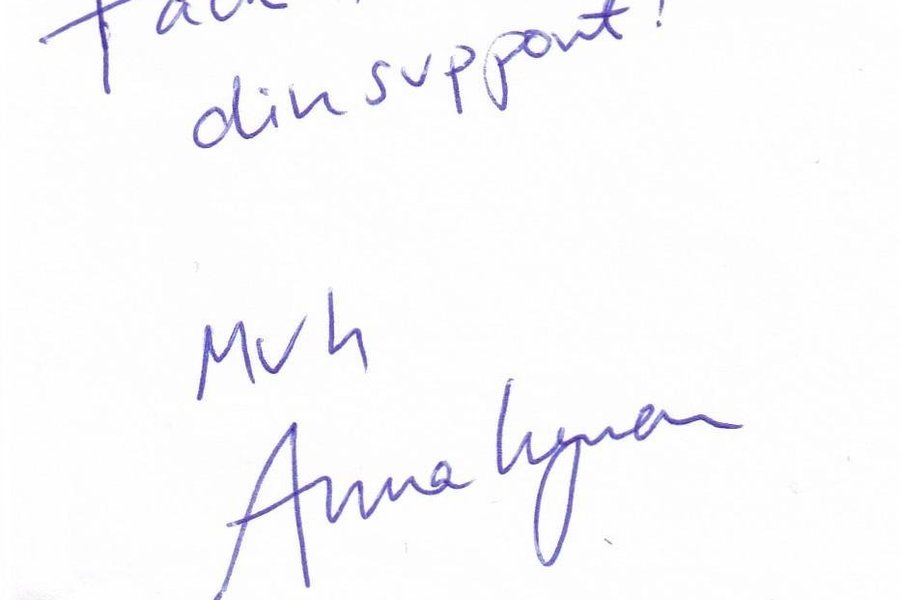 Tack
din support!
Mvh
Anna